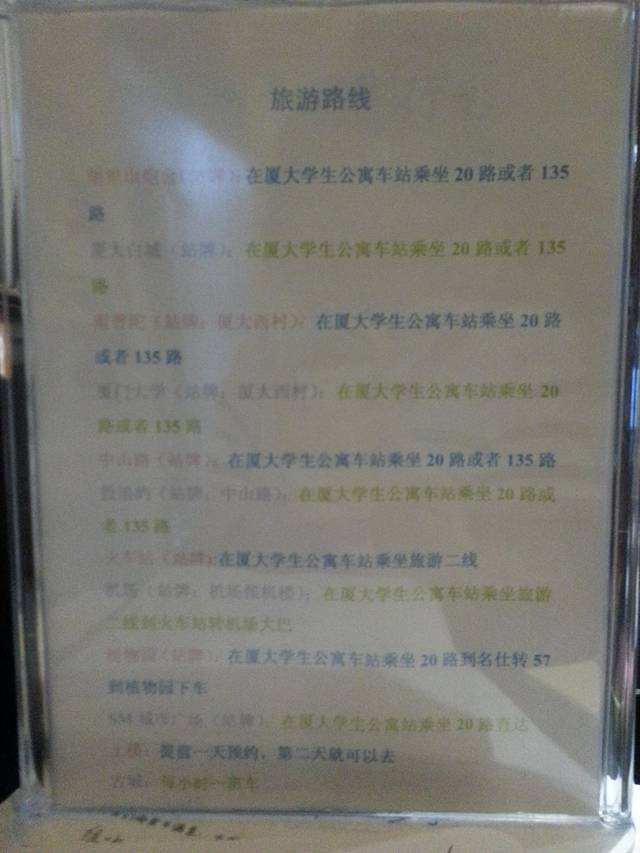 旅游路线
胡里山炮台（站牌）：在厦大学生公寓车站乘坐 20 路或者 135
路
厦大白城（站牌）：在厦大学生公寓车站乘坐 20 路或者 135
路
南普陀（站牌：厦大西村）：在厦大学生公寓车站乘坐 20 路
或者 135 路
厦门大学（站牌：厦大西村）：在厦大学生公寓车站乘坐 20
路或者 135 路
中山路（站牌）：在厦大学生公寓车站乘坐 20 路或者 135 路
鼓浪屿（站牌：中山路）：在厦大学生公寓车站乘坐 20 路或
者 135 路
火车站（站牌）：在厦大学生公寓车站乘坐旅游二线
机场（站牌：机场候机楼）：在厦大学生公寓车站乘坐旅游
二线到火车站转机场大巴
植物园（站牌）：在厦大学生公寓车站乘坐 20 路到名仕转 57
到植物园下车
SM 城市广场（站牌）：在厦大学生公寓车站乘坐 20 路直达
土楼：提前一天预约，第二天就可以去
古城：每小时一班车